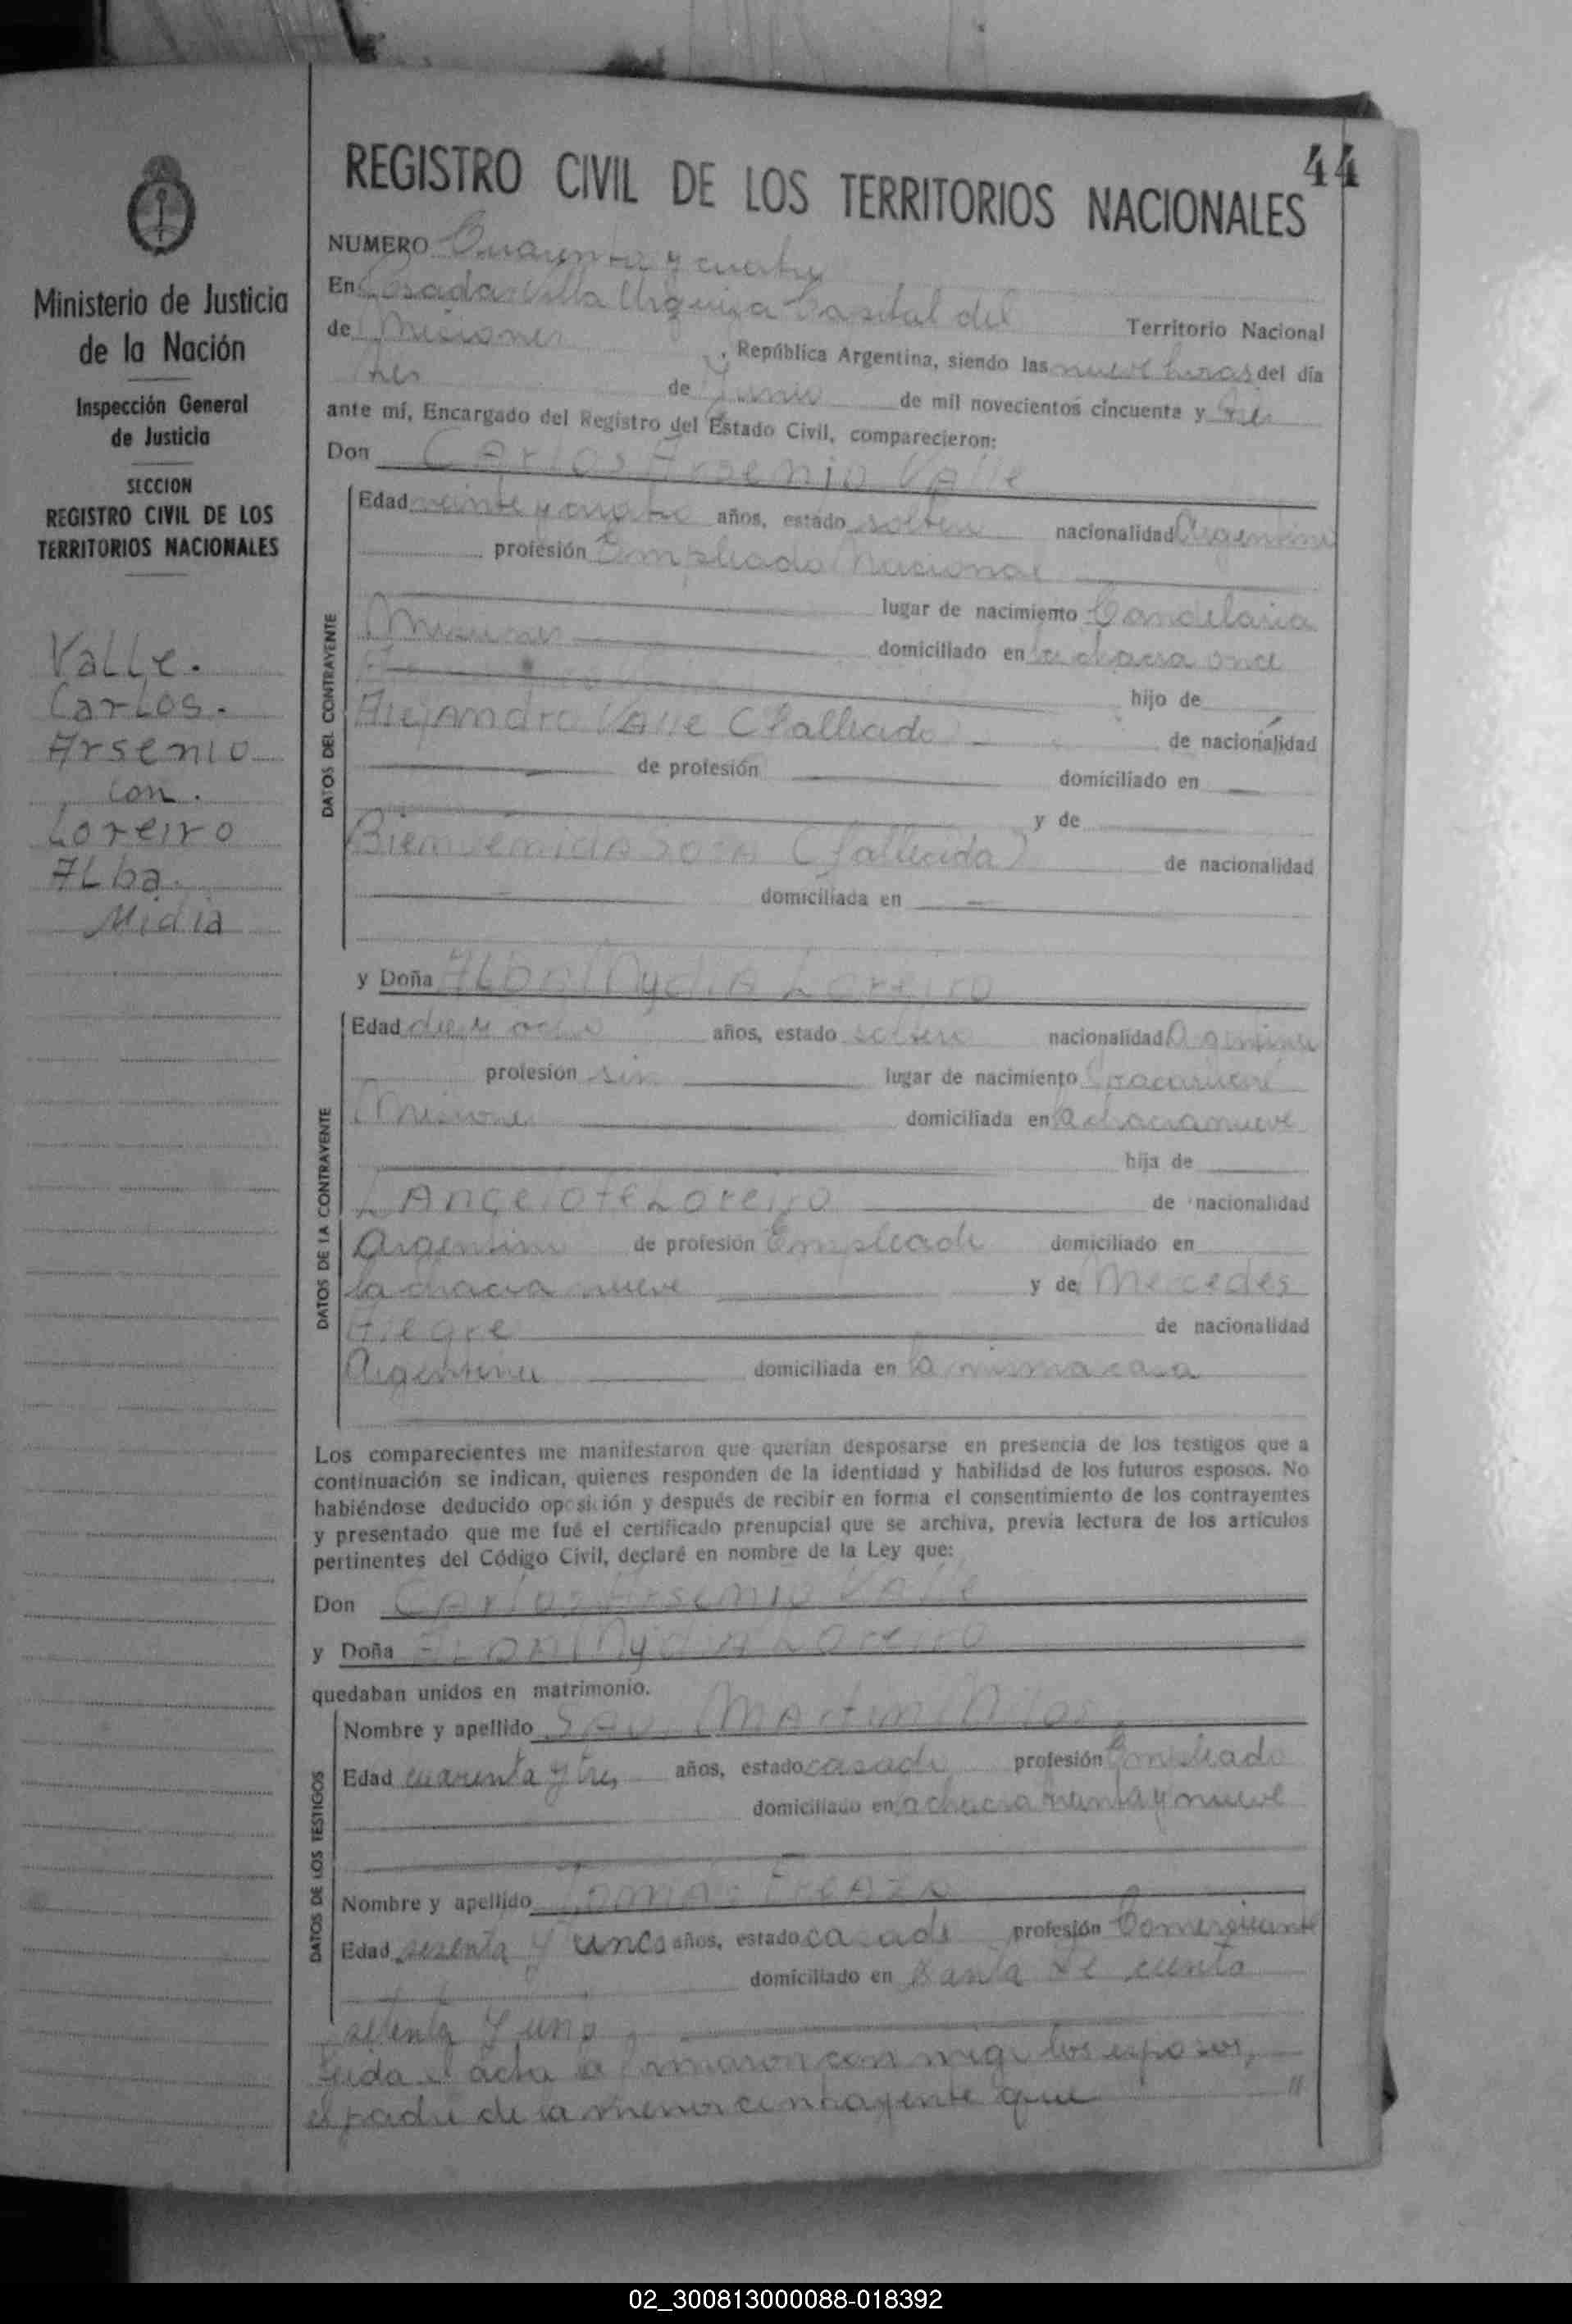 44
REGISTRO CIVIL DE LOS TERRITORIOS NACIONALES
Ministerio de Justicia
de la Nación
Inspección General
de Justicia
SECCION
REGISTRO CIVIL DE LOS
TERRITORIOS NACIONALES
Valle.
Carlos.
Arsenio
con.
Loreiro
Alba.
Midia
NUMERO Cuarenta y cuatro
En Posadas Villa Urquiza Capital del Territorio Nacional
de Misiones, República Argentina, siendo las nueve horas del día
tres de Junio de mil novecientos cincuenta y tres
ante mí, Encargado del Registro del Estado Civil, comparecieron:
Don Carlos Arsenio Valle
DATOS DEL CONTRAYENTE
Edad veinte y cuatro años, estado soltero nacionalidad Argentino
profesión Empleado Nacional
lugar de nacimiento Candelaria
Misiones domiciliado en la chacra once
hijo de
Alejandro Valle (fallecido) de nacionalidad
de profesión domiciliado en
y de
Bienvenida Sosa (fallecida) de nacionalidad
domiciliada en
y Doña Alba Nydia Loreiro
DATOS DE LA CONTRAYENTE
Edad diez y ocho años, estado soltera nacionalidad Argentina
profesión sin lugar de nacimiento
Misiones domiciliada en la chacra nueve
hija de
Lancelote Loreiro de nacionalidad
Argentino de profesión Empleado domiciliado en
la chacra nueve y de Mercedes
Alegre de nacionalidad
Argentina domiciliada en la misma casa
Los comparecientes me manifestaron que querían desposarse en presencia de los testigos que a
continuación se indican, quienes responden de la identidad y habilidad de los futuros esposos. No
habiéndose deducido oposición y después de recibir en forma el consentimiento de los contrayentes
y presentado que me fué el certificado prenupcial que se archiva, previa lectura de los artículos
pertinentes del Código Civil, declaré en nombre de la Ley que:
Don Carlos Arsenio Valle
y Doña Alba Nydia Loreiro
quedaban unidos en matrimonio.
DATOS DE LOS TESTIGOS
Nombre y apellido Martin
Edad cuarenta y tres años, estado casado profesión Empleado
domiciliado en la chacra treinta y nueve
Nombre y apellido Tomas
Edad sesenta y cinco años, estado casado profesión Comerciante
domiciliado en Santa Fe ciento
setenta y uno
Leida el acta la firmaron con migo los esposos,
el padre de la menor contrayente que "
02_300813000088-018392